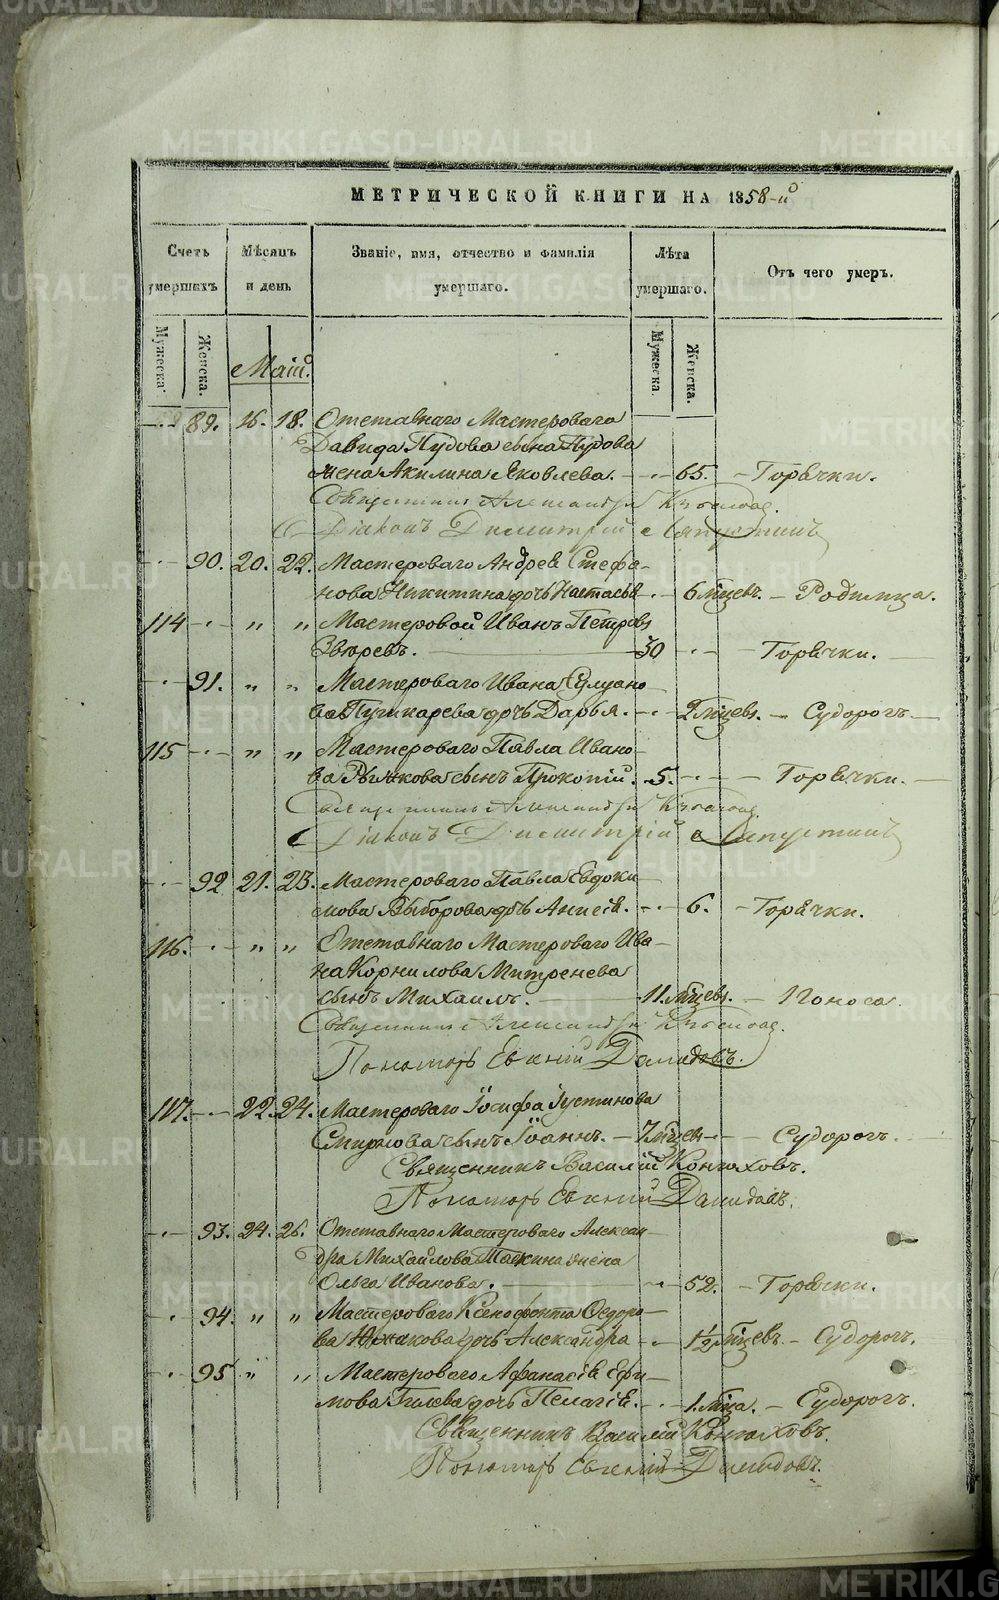 МЕТРИЧЕСКОЙ КНИГИ НА 1858-й
Счетъ умершихъ
Мѣсяцъ и день
Званіе, имя, отчество и фамилія умершаго.
Лѣта умершаго.
Отъ чего умеръ.
Мужеска.
Женска.
Маій.
Мужеска.
Женска.
89. 16. 18. Отставнаго Мастероваго
Давида Пудова сына Пудова
жена Акилина Яковлева. 65. Горячки.
Священникъ Александръ
Діаконъ Димитрій Ляпустинъ
90. 20. 22. Мастероваго Андрея Стефа-
нова Никитина дочь Настасія 6 мѣцевъ. Родимца.
114 " " Мастеровой Иванъ Петровъ
Звѣревъ. 30 Горячки.
91. " " Мастероваго Ивана
ва Пушкарева дочь Дарья. 2 мѣцевъ. Судорогъ
115 " " Мастероваго Павла Ивано-
ва Рыжкова сынъ Прокопій. 5. Горячки.
Священникъ Александръ
Діаконъ Димитрій Ляпустинъ
92 21. 23. Мастероваго Павла Евдоки-
мова Выборова дочь Анисія. 6. Горячки.
116. " " Отставнаго Мастероваго Ива-
на Корнилова Митренева
сынъ Михаилъ. 11. мѣцевъ. Поноса.
Священникъ Александръ
Пономарь Евгеній Давидовъ.
117. 22. 24. Мастероваго Іосифа Іустинова
Смирнова сынъ Іоаннъ. 7 мѣцевъ Судорогъ.
Священникъ Василій Конюховъ.
Пономарь Евгеній Давидовъ.
93. 24. 26. Отставнаго Мастероваго Алексан-
дра Михайлова Таскина жена
Ольга Иванова. 52. Горячки.
94. " " Мастероваго Ксенофонта Ѳедоро-
ва Южакова дочь Александра 1½ мѣцевъ. Судорогъ.
95 " " Мастероваго Афанасія Ефи-
мова Гилева дочь Пелагія. 1. мѣца. Судорогъ.
Священникъ Василій Конюховъ.
Пономарь Евгеній Давидовъ.
METRIKI.GASO-URAL.RU